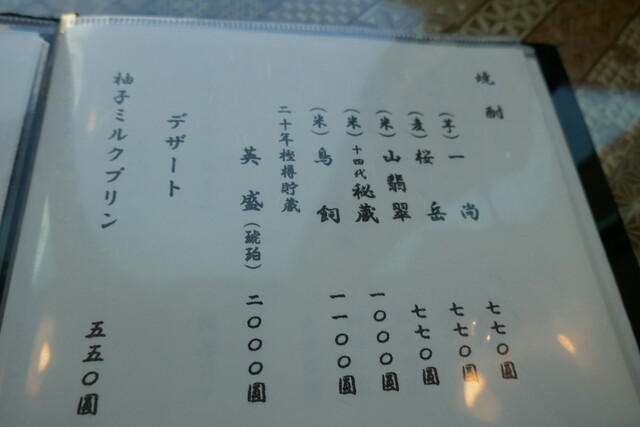 焼酎
(芋)一尚 七七〇圓
(麦)桜岳 七七〇圓
(米)山翡翠 七七〇圓
(米)十四代秘蔵 一〇〇〇圓
(米)鳥飼 一一〇〇圓
二十年樫樽貯蔵
英盛(琥珀) 二〇〇〇圓
デザート
柚子ミルクプリン 五五〇圓